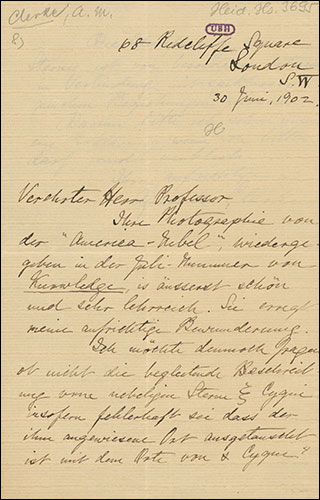 Clerke, A. M.
Heid. Hs. 3695
UBH
68 Redcliffe Square
London
S.W
30 Juni, 1902.
Verehrter Herr Professor
Ihre Photographie von
der "America-Nebel", wiederge-
geben in der Juli-Nummer von
Knowledge, is äusserst schön
und sehr lehrreich. Sie erregt
meine aufrichtige Bewunderung.
Ich möchte dennoch fragen
ob nicht die begleitende Beschreib
ung vom nebeligen Sterne ξ Cygni
insofern fehlerhaft sei dass der
ihm angewiesene Ort ausgetauscht
ist mit dem Orte von α Cygni?